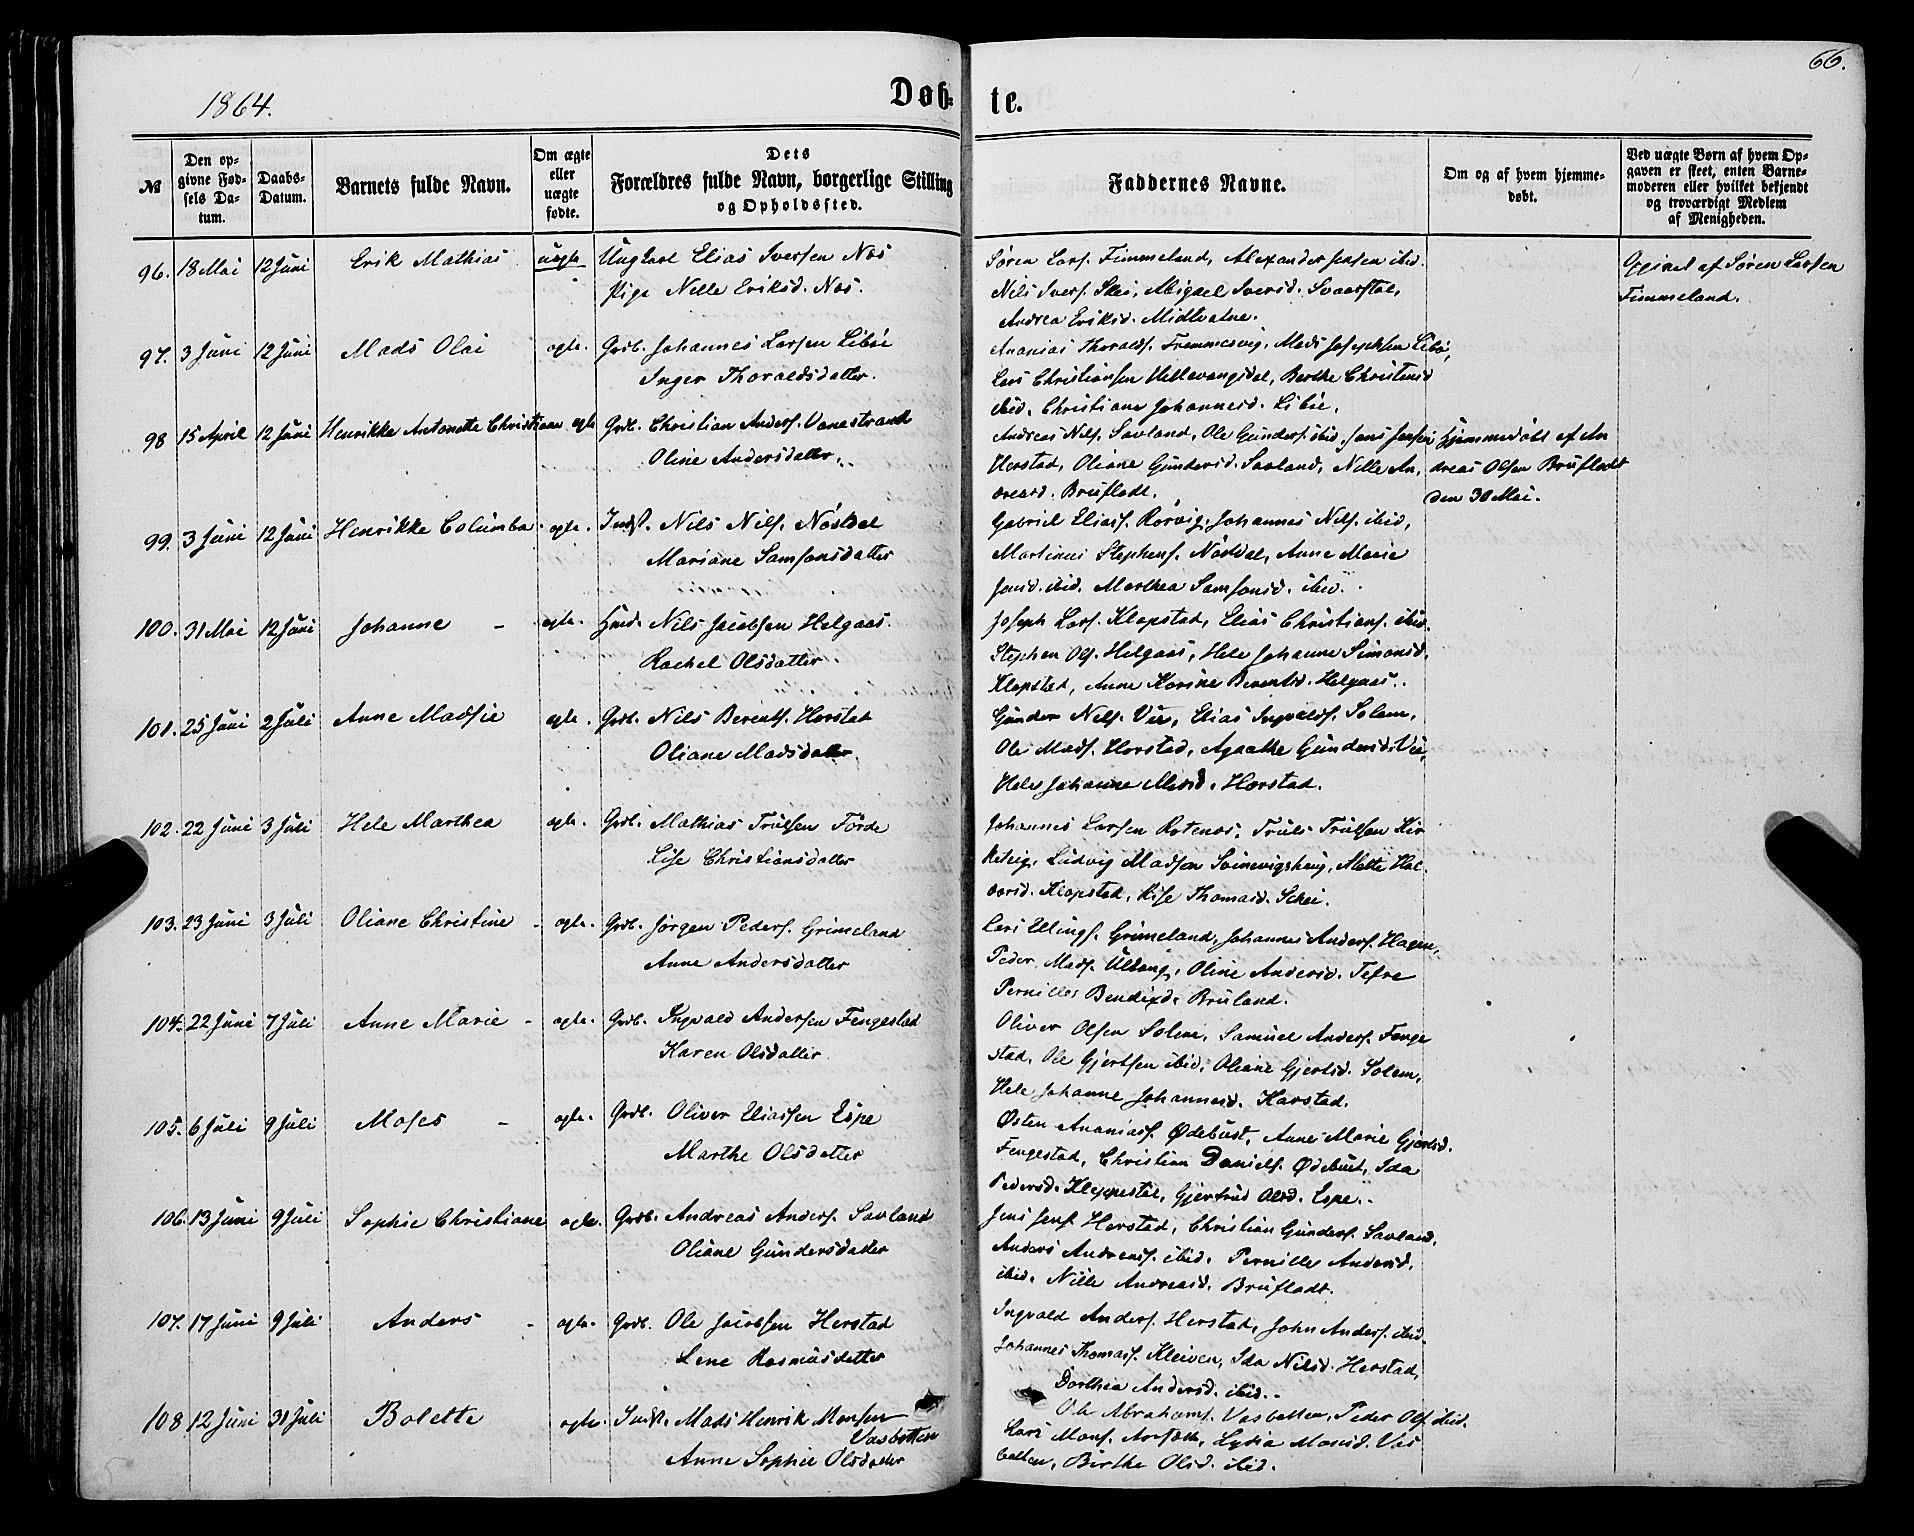 66.
1864.
Døb-
te.
№
Den op-
givne Fød-
sels Da-
tum.
Daabs-
Datum.
Barnets fulde Navn.
Om ægte
eller
uægte
fødte.
Dets
Forældres fulde Navn, borgerlige Stilling
og Opholdssted.
Faddernes Navne.
Om og af hvem hjemme-
døbt.
Ved uægte Børn af hvem Op-
gaven er skeet, enten Barne-
moderen eller hvilket bekjendt
og troværdigt Medlem
af Menigheden.
96. 18 Mai 12 Juni Erik Mathias uægte Ungkarl Elias Iversen Nos
Pige Nille Eriksd. Nos.
Søren Lars. Timmeland, Alexander Jensen ibid.
Nils Ivers. Skei, Abigael Iversd. Svaerstal,
Andrea Eriksd. Midtvatne.
Opgivet af Søren Larsen
Timmeland.
97. 3 Juni 12 Juni Mads Olai ægte. Grdb. Johannes Larsen Libøe
Inger Thoraldsdatter.
Ananias Thoralds. Frammesvig, Mads Josephsen Libø,
Lars Christiansen Hellevangsdal, Berthe Christensd
ibid. Christiane Johannesd. Libøe.
98 15 April 12 Juni Henrikke Antonette Christiane ægte Grdb. Christian Anders. Vonestrand
Oline Andersdatter.
Andreas Nils. Savland, Ole Gunders. ibid, Jens Jensen
Herstad, Oliane Gundersd. Savland, Nille An,
dreasd. Brufladt.
Hjemmedøbt af An
dreas Olsen Brufladt
den 30 Mai.
99. 3 Juni 12 Juni Henrikke Columba ægte. Indst. Nils Nils. Nøstdal
Mariane Samsonsdatter
Gabriel Elias. Rørvig, Johannes Nils. ibid,
Martinus Stephens. Nøstdal, Anne Marie
Jensd. ibid. Marthea Samsonsd. ibid.
100. 31 Mai 12 Juni Johanne - ægte. Hmd. Nils Jacobsen Helgaas.
Rachel Olsdatter.
Joseph Lars. Klopstad, Elias Christians. ibid.
Stephen Ols. Helgaas, Hele Johanne Simonsd.
Klopstad, Anne Karine Berentsd. Helgaas.
101. 25 Juni 2 Juli Anne Madsie ægte. Grdb. Nils Berents. Horstad
Oliane Madsdatter.
Gunder Nils. Vie, Elias Ingvalds. Solem,
Ole Mads. Horstad, Agaathe Gundersd. Vie,
Hele Johanne Madsd. Horstad.
102. 22 Juni 3 Juli Hele Marthea ægte. Grdb. Mathias Trulsen Førde
Lise Christiansdatter
Johannes Larsen Rotenes, Truls Trulsen Kir
keteig, Ludvig Madsen Svinevigshoug, Mette Hal.
vorsd. Klopstad, Lise Thomasd. Schei.
103. 23 Juni 3 Juli Oliane Christine - ægte. Grdb. Jørgen Peders. Grimeland
Anne Andersdatter
Lars Ellings. Grimeland, Johannes Anders. Hagen,
Peder Mads. Ultang, Oline Andersd. Tefre
Pernilles Bendixd. Bruland.
104. 22 Juni 7 Juli Anne Marie - ægte. Grdb. Ingvald Andersen Fengestad
Karen Olsdatter
Oliver Olsen Solem, Samuel Anders. Fenge
stad, Ole Gjertsen ibid, Oliane Gjertsd. Solem,
Hele Johanne Johannesd. Horstad.
105. 6 Juli 9 Juli Moses - ægte. Grdb. Oliver Eliassen Espe
Marthe Olsdatter
Østen Ananias. Ødebust, Anne Marie Gjertsd.
Fengestad, Christian Daniels. Ødebust, Ida
Pedersd. Kleppestal, Gjertrud Olsd. Espe.
106. 13 Juni 9 Juli Sophie Christiane ægte. Grdb. Andreas Anders. Savland
Oliane Gundersdatter
Jens Jens. Herstad, Christian Gunders. Savland,
Anders Andreas. ibid. Pernille Andersd.
ibid. Nille Andreasd. Brufladt.
107. 17 Juni 9 Juli Anders - ægte. Grdb. Ole Jacobsen Herstad
Lene Rasmusdatter
Ingvald Anders. Herstad, John Anders. ibid.
Johannes Thomas. Kleiven, Ida Nilsd. Herstad,
Dorthea Andersd. ibid.
108 12 Juni 31 Juli Bolette ægte. Indst. Mads Henrik Monsen
Vasbotten
Anne Sophie Olsdatter
Ole Abrahams. Vasbotten, Peder Ols. ibid.
Lars Mons. Lydia Monsd. Vas
botten, Birthe Olsd. ibid.